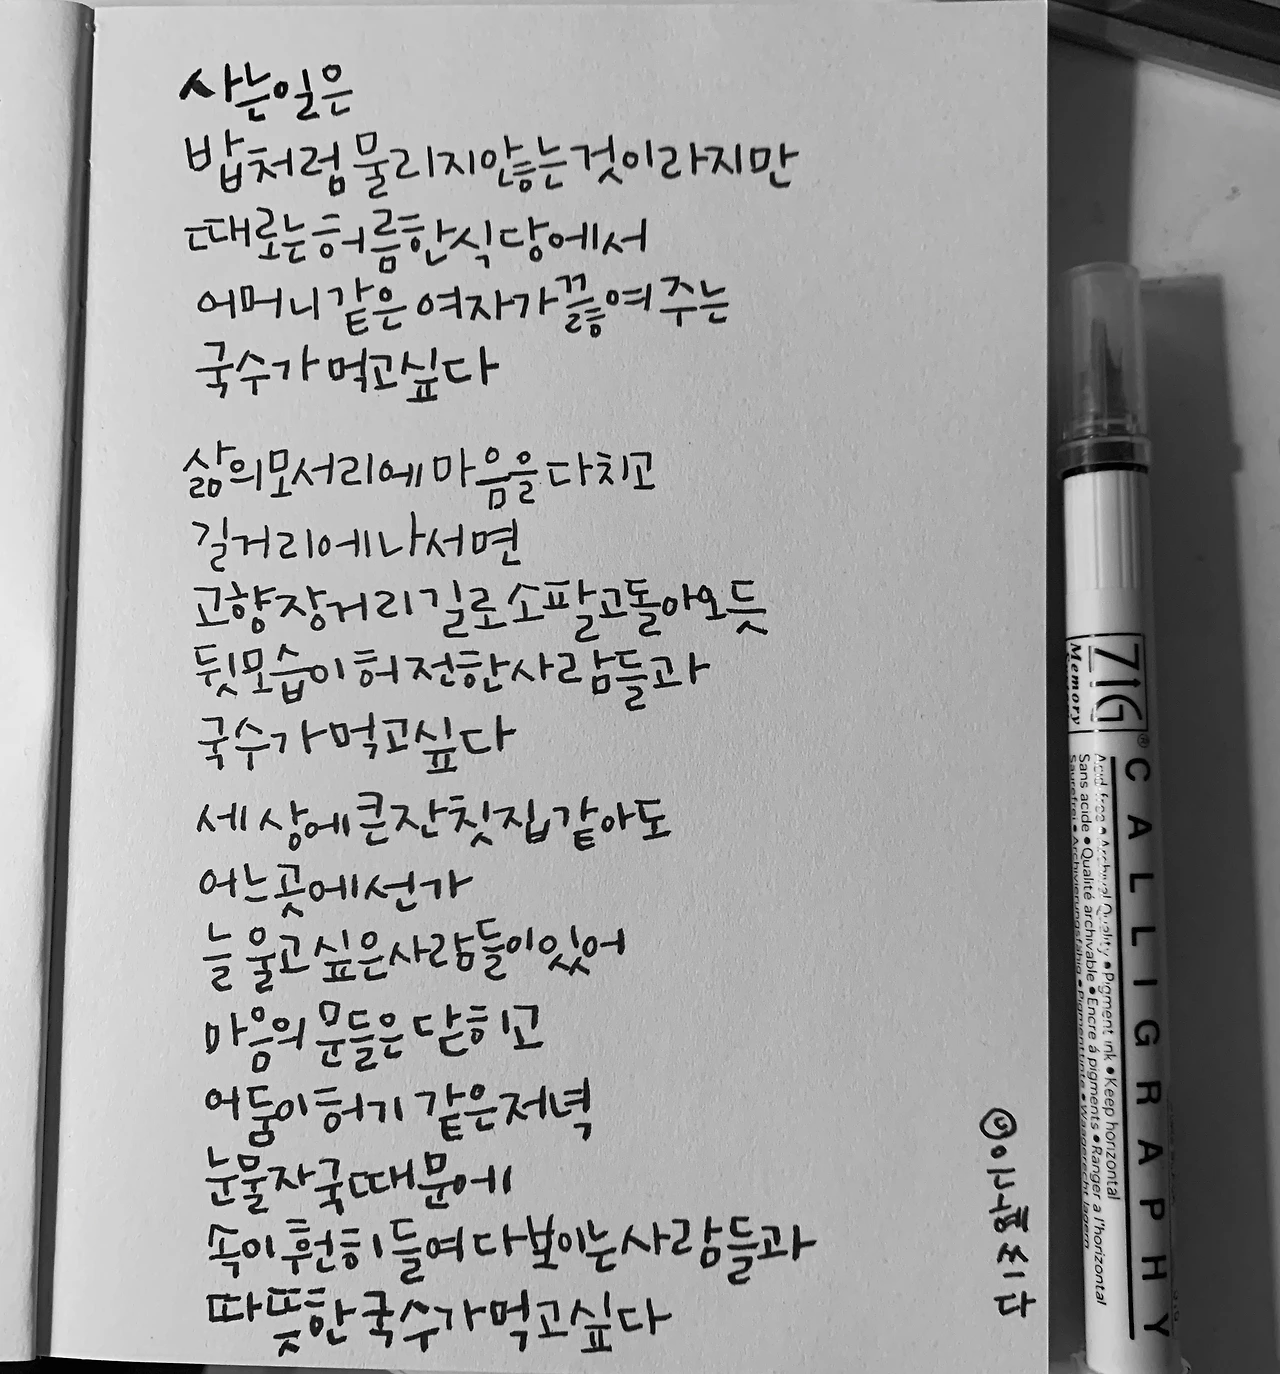 사는일은
밥처럼 물리지않는것이라지만
때로는허름한식당에서
어머니같은 여자가끓여주는
국수가먹고싶다
삶의모서리에 마음을다치고
길거리에나서면
고향장거리길로소팔고돌아오듯
뒷모습이허전한사람들과
국수가 먹고싶다
세상에큰잔칫집같아도
어느곳에선가
늘 울고싶은사람들이있어
마음의 문들은닫히고
어둠이허기 같은저녁
눈물자국때문에
속이훤히들여다보이는사람들과
따뜻한국수가먹고싶다
쓰다
ZIG®
Memory
CALLIGRAPHY
Acid free • Archival Quality • Pigment ink • Keep horizontal
Sans acide • Qualité archivable • Encre à pigments • Ranger a l'horizontal